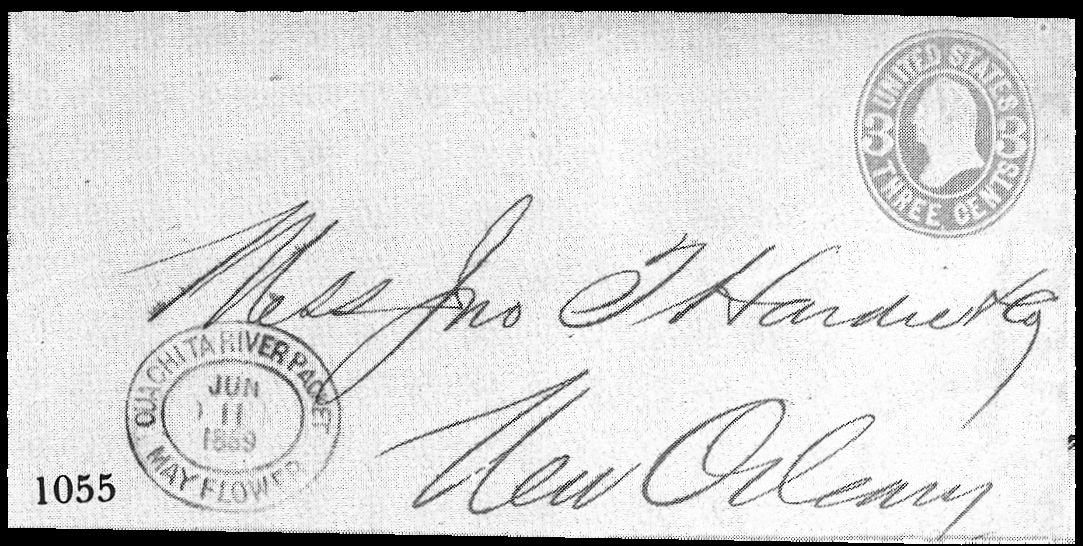 UNITED STATES
3 3
THREE CENTS
Mess Jno T Hardie & Co
New Orleans
OUACHITA RIVER PACKET
JUN
11
1869
MAYFLOWER
1055